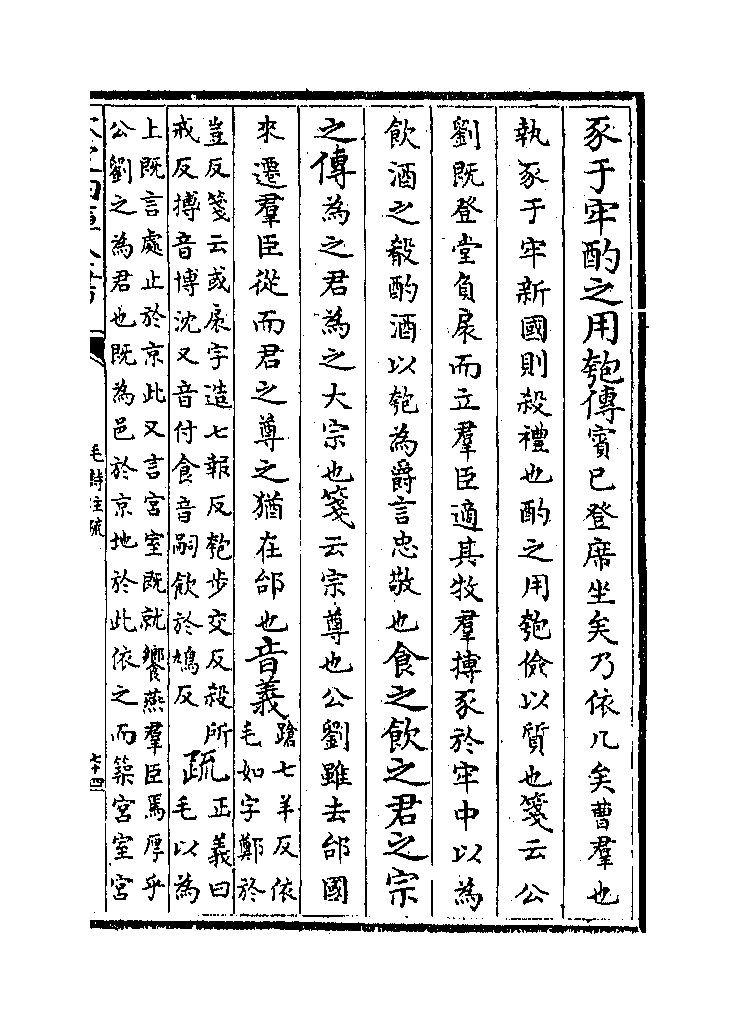 豕于牢酌之用匏傳賓已登席坐矣乃依几矣曹羣也
執豕于牢新國則殺禮也酌之用匏儉以質也箋云公
劉既登堂負扆而立羣臣適其牧羣搏豕於牢中以為
飲酒之殽酌酒以匏為爵言忠敬也食之飲之君之宗
之傳為之君為之大宗也箋云宗尊也公劉雖去邰國
來遷羣臣從而君之尊之猶在邰也音義
蹌七羊反依
毛如字鄭於
豈反箋云或扆字造七報反匏步交反殺所
戒反搏音博沈又音付食音嗣飲於鴆反
疏
正義曰
毛以為
上既言處止於京此又言宮室既就饗燕羣臣焉厚乎
公劉之為君也既為邑於京地於此依之而築宮室宮
毛詩注疏
七十四